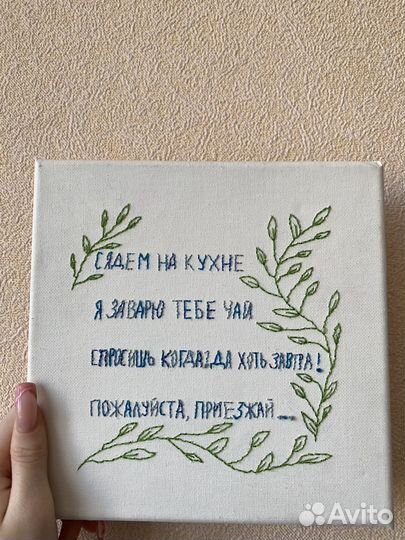 СЯДЕМ НА КУХНЕ
Я ЗАВАРЮ ТЕБЕ ЧАЙ
СПРОСИШЬ КОГДА?ДА ХОТЬ ЗАВТРА!
ПОЖАЛУЙСТА, ПРИЕЗЖАЙ...
Avito